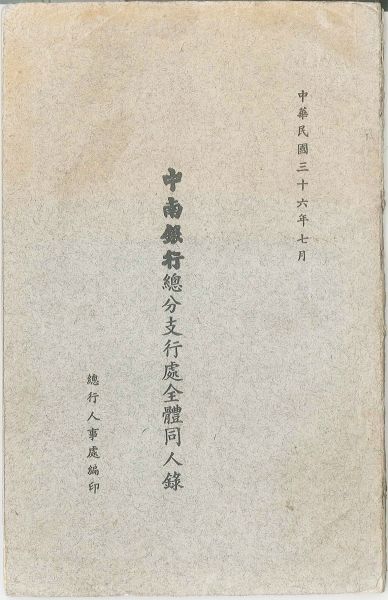 中華民國三十六年七月
中南銀行總分支行處全體同人錄
總行人事處編印